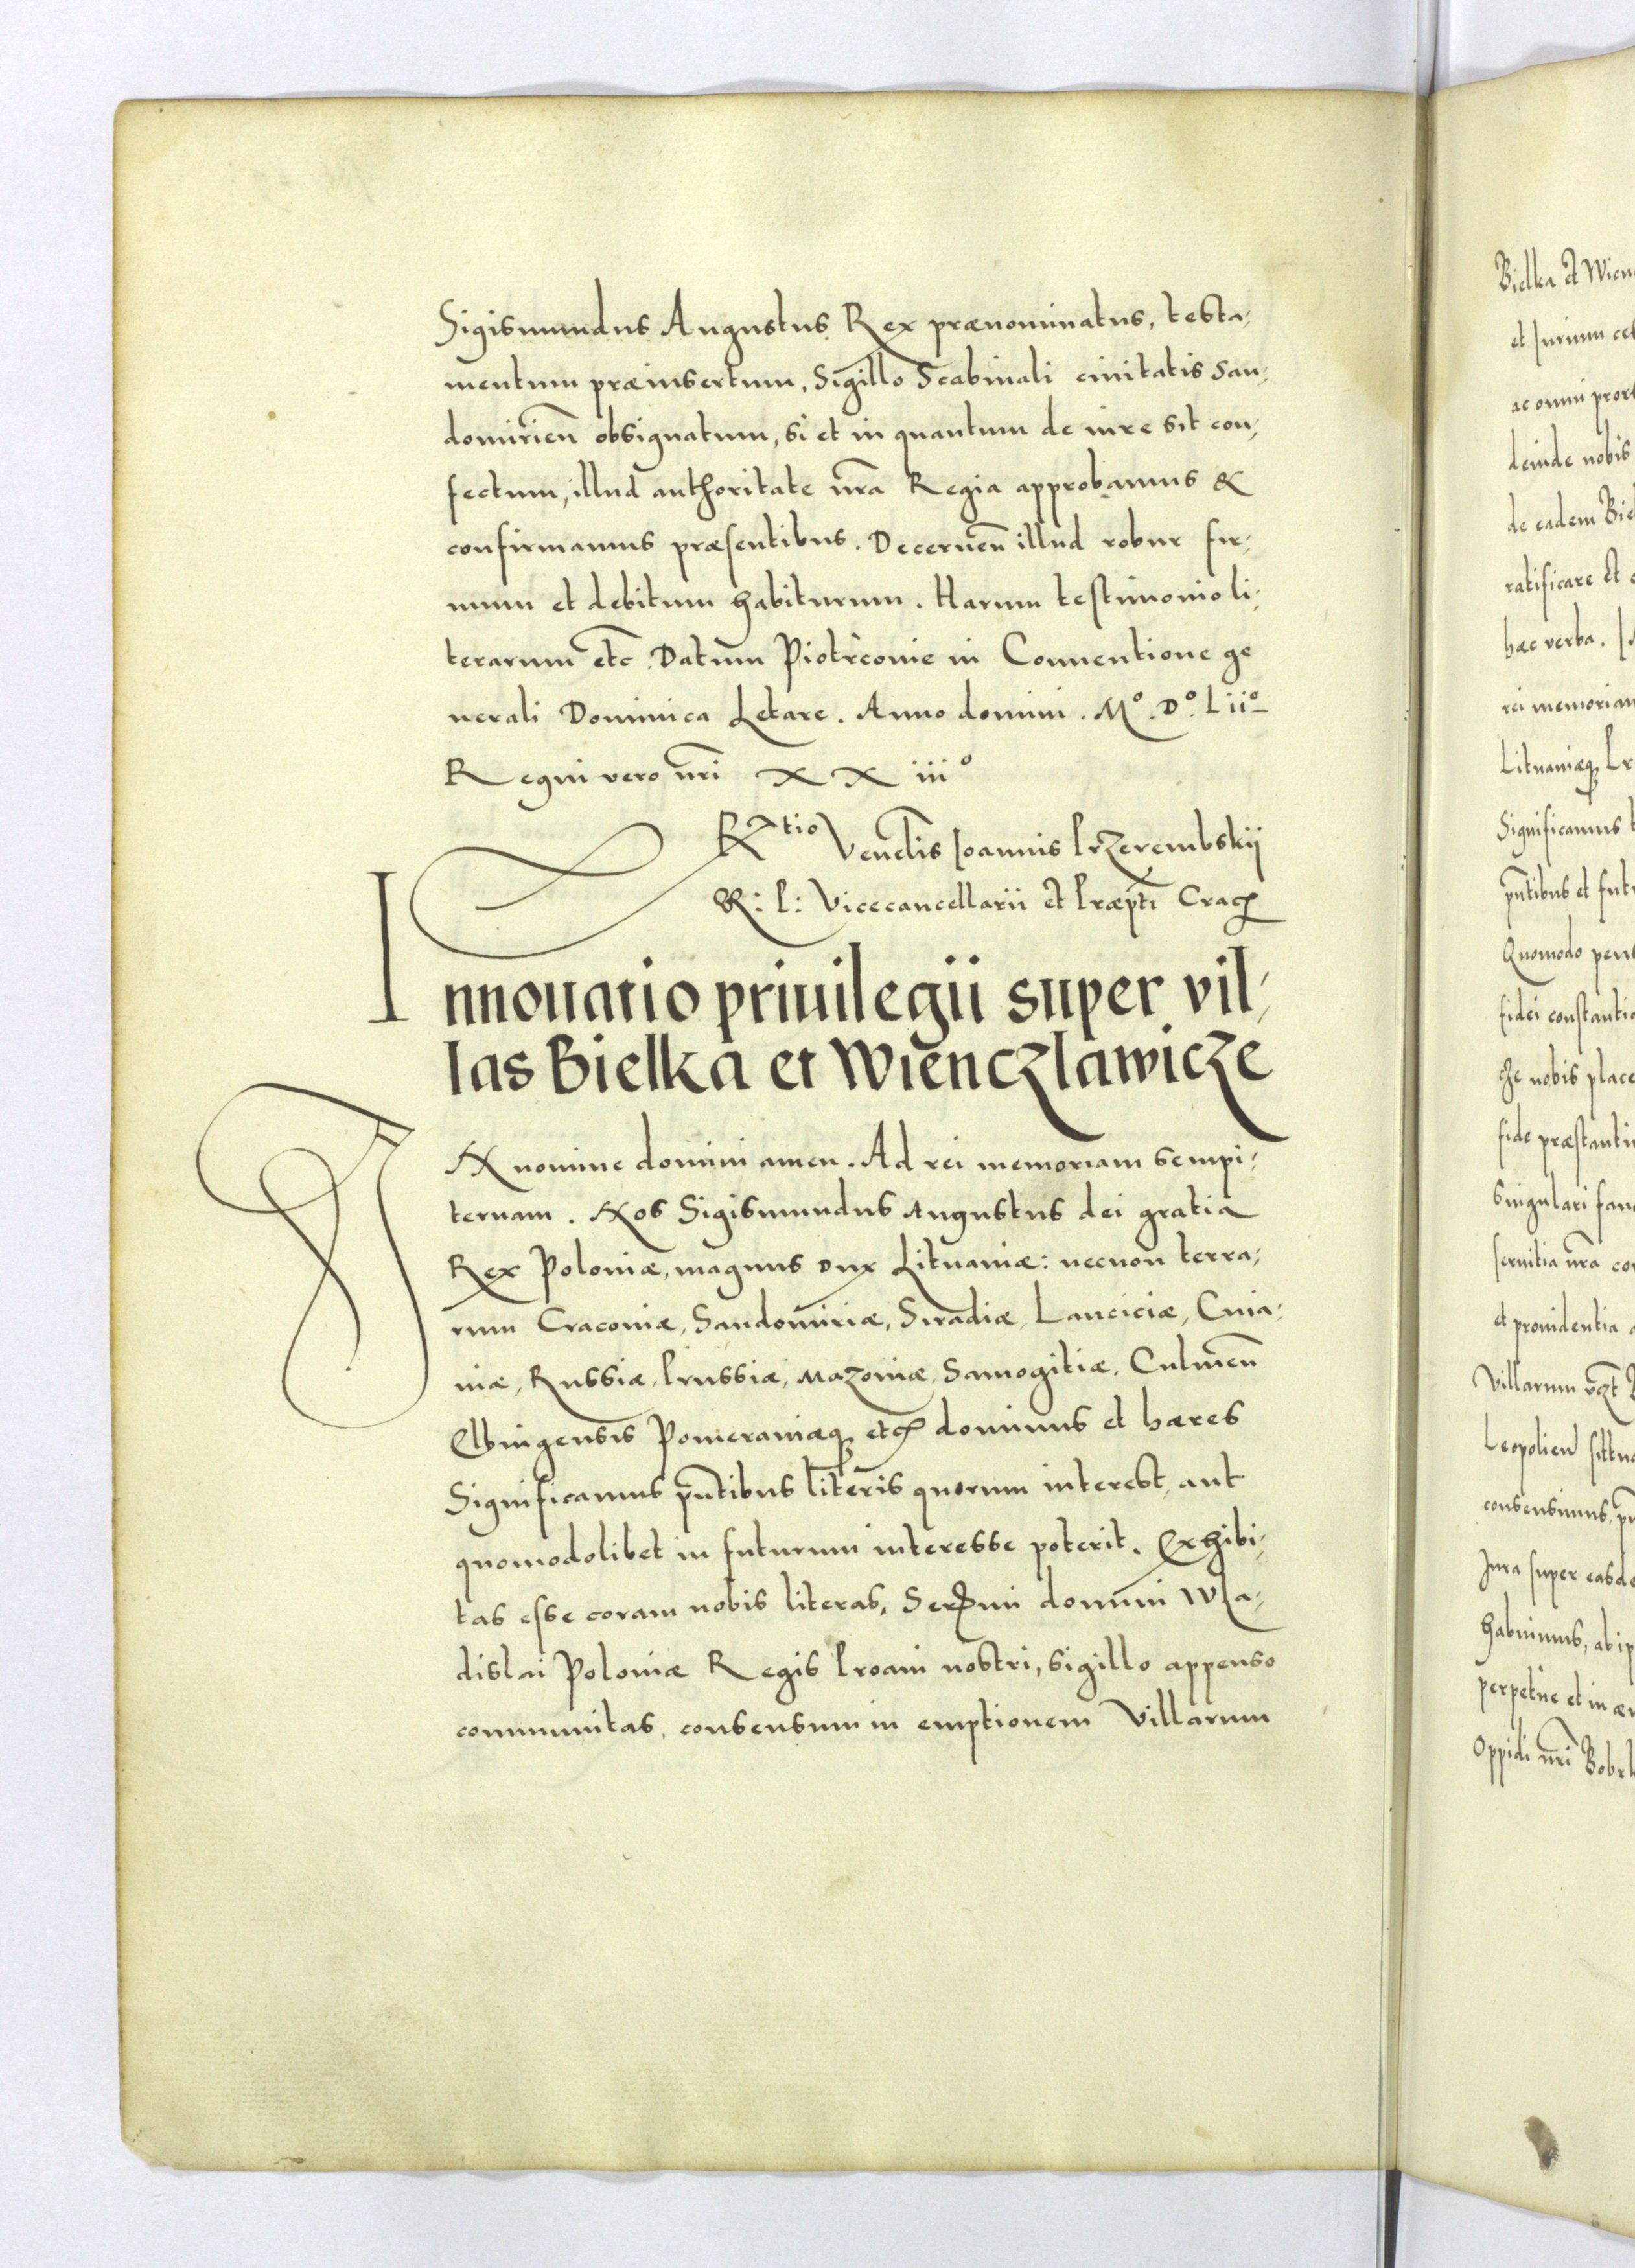 Sigismundus Augustus Rex prænominatus, testa,
mentum præinsertum, Sigillo Scabinali ciuitatis San,
domirien̄ obsignatum, si et in quantum de iure sit con,
fectum, illud authoritate nr̄a Regia approbamus &
confirmamus præsentibus. Decernen̄ illud robur fir,
mum et debitum habiturum. Harum testimonio li,
terarum etc̄. Datum Piotrcouie in Conuentione ge
nerali Dominica Letare. Anno domini. Mº. Dº. Liiº
Regni vero nr̄i XXiiiº
Rtio Venelis Ioannis Przerembskij
R: P: Vicecancellarii et Præpti Crac
Innouatio priuilegii super vil,
las Bielka et Wienczlawicze
IN nomine domini amen. Ad rei memoriam sempi,
ternam. Nos Sigismundus Augustus dei gratia
Rex Poloniæ, magnus Dux Lituaniæ: necnon terra,
rum Cracouiæ, Sandomiriæ, Siradiæ, Lanciciæ, Cuia,
uiæ, Russiæ, Prussiæ, Mazouiæ, Samogitiæ, Culmen̄
Elbingensis Pomeraniæq; etc dominus et hæres
Significamus pn̄tibus literis quorum interest, aut
quomodolibet in futurum interesse poterit. Exhibi,
tas esse coram nobis literas, Serẽmi domini Wla,
dislai Poloniæ Regis Proaui nostri, sigillo appenso
communitas, consensum in emptionem Villarum
Bielka et Wien
et Iurium
ac omni
deinde nobis
de eadem
ratificare et
hæc verba.
rei memoriam
Lituaniæq;
Significamus
pn̄tibus et
Quomodo
fidei
nobis
fide
singulari
seruitia nr̄a
et prouidentia
Villarum
Leopolien̄
consensimus,
Iura super
habuimus,
perpetue et in
Oppidi nr̄i